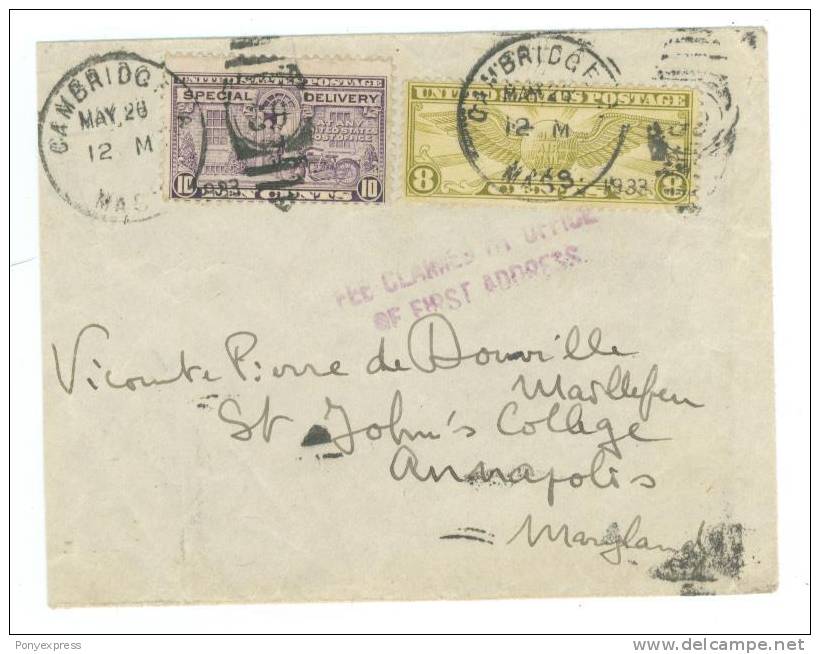 CAMBRIDGE
MAY 26
12 M
MASS
1933
UNITED STATES POSTAGE
SPECIAL DELIVERY
UNITED STATES
POST OFFICE
10 TEN CENTS 10
CAMBRIDGE
MAY 26
12 M
MASS
1933
UNITED STATES POSTAGE
8 CENTS 8
FEE CLAIMED BY OFFICE
OF FIRST ADDRESS
Vicomte Pierre de Douville
Maillefeu
St John's College
Annapolis
Maryland
Ponyexpress
delcampe.net